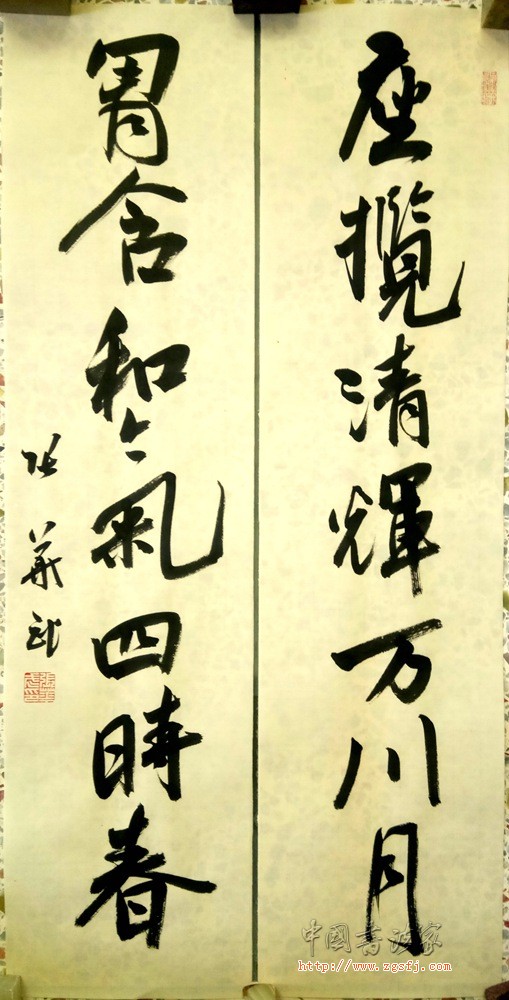 座攬清輝万川月
胷含和氣四時春
张華
中國書法家
http://www.zgsfj.com